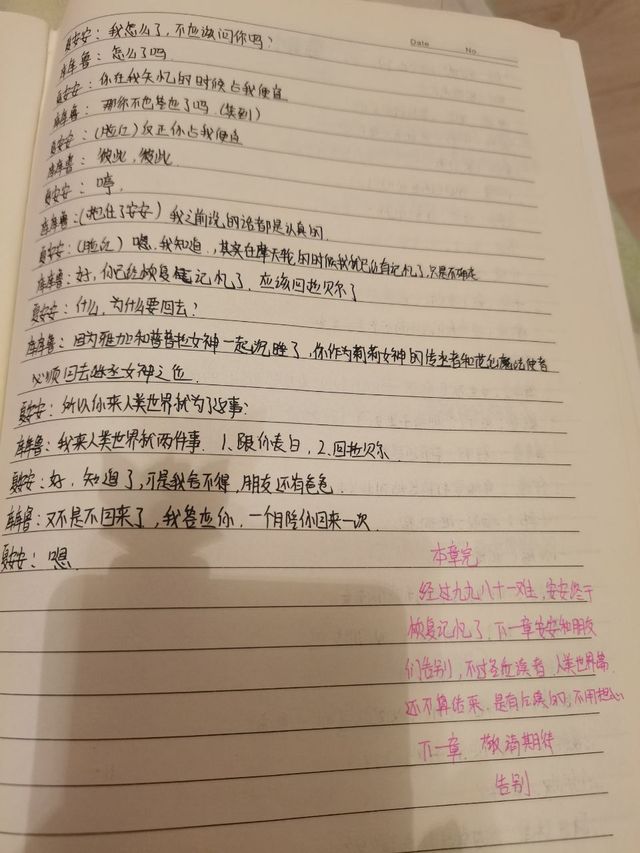 Date No.
夏安安：我怎么了，不应该问你吗？
库库鲁：怎么了吗
夏安安：你在我失忆的时候占我便宜
库库鲁：那你不也答应了吗（笑到）
夏安安：（脸红）反正你占我便宜
库库鲁：彼此，彼此
夏安安：哼，
库库鲁：（抱住了安安）我之前说的话都是认真的
夏安安：（脸红）嗯，我知道，其实在摩天轮的时候我就已经有记忆了，只是不确定
库库鲁：好，你已经恢复记忆了，应该回拉贝尔了
夏安安：什么，为什么要回去？
库库鲁：因为雅加和普普拉女神一起沉睡了，你作为莉莉女神的传承者和花仙魔法使者
必须回去继承女神之位
夏安安：所以你来人类世界就为了这事？
库库鲁：我来人类世界就两件事 1、跟你表白，2、回拉贝尔
夏安安：好，知道了，可是我舍不得，朋友还有爸爸
库库鲁：又不是不回来了，我答应你，一个月陪你回来一次
夏安安：嗯
本章完
经过九九八十一难，安安终于
恢复记忆了，下一章安安和朋友
们告别，不过各位读者，人类世界篇
还不算结束，是有后续的，不用担心
下一章 敬请期待
告别